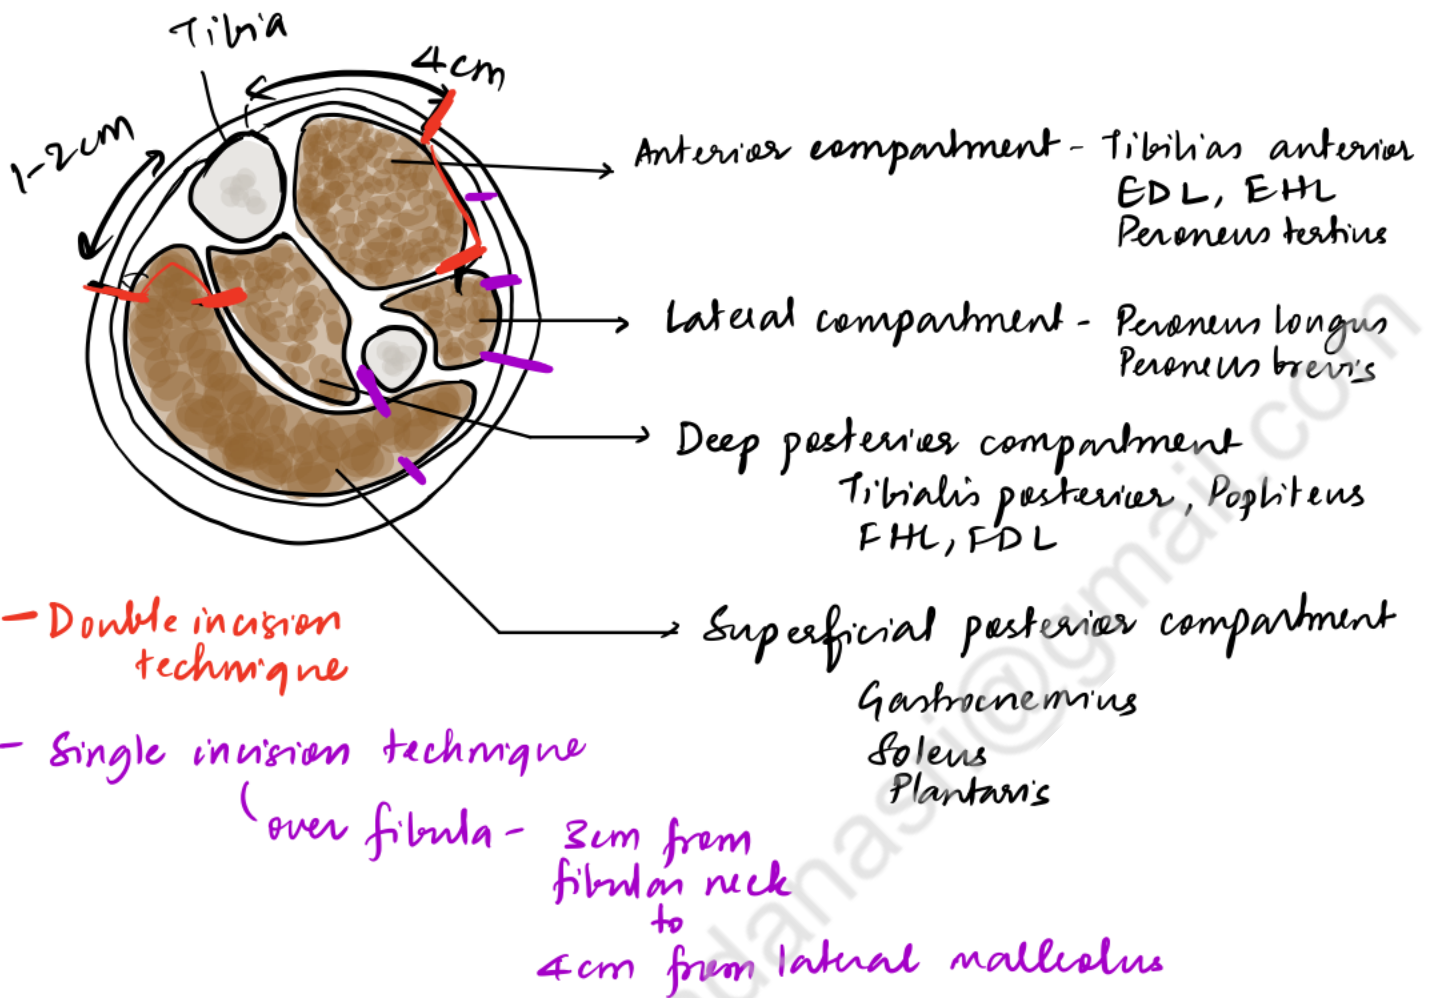 Tibia
4cm
1-2cm
Anterior compartment - Tibilias anterior
EDL, EHL
Peroneus tertius
Lateral compartment - Peroneus longus
Peroneus brevis
Deep posterior compartment
Tibialis posterior, Popliteus
FHL, FDL
- Double incision
technique
Superficial posterior compartment
Gastrocnemius
Soleus
Plantaris
- Single incision technique
over fibula - 3cm from
fibular neck
to
4cm from lateral malleolus
danasri@gmail.com